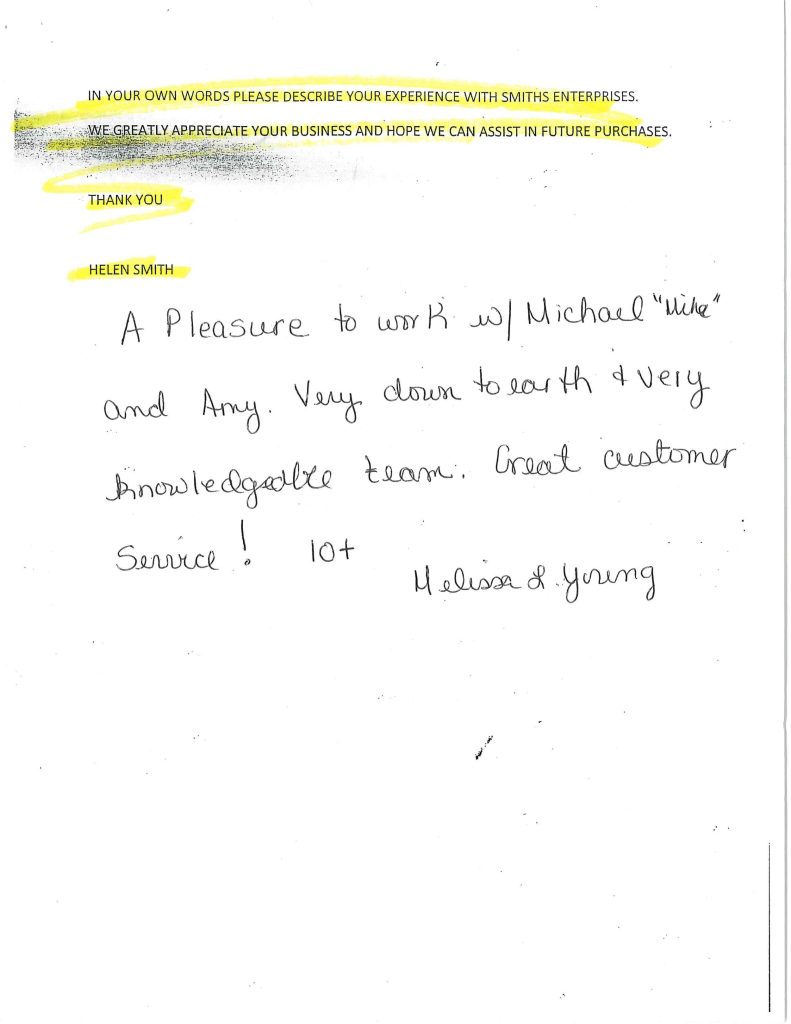 IN YOUR OWN WORDS PLEASE DESCRIBE YOUR EXPERIENCE WITH SMITHS ENTERPRISES.
WE GREATLY APPRECIATE YOUR BUSINESS AND HOPE WE CAN ASSIST IN FUTURE PURCHASES.
THANK YOU
HELEN SMITH
A Pleasure to work w/ Michael "Mike"
and Amy. Very down to earth & very
knowledgeable team. Great customer
Service! 10+
Melissa L. Young